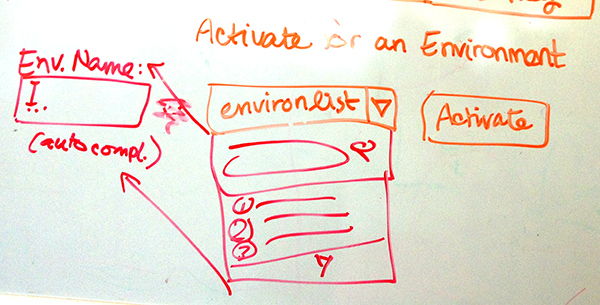 Activate or an Environment
Env. Name:
I..
(autocompl.)
environlist
Activate
1
2
3